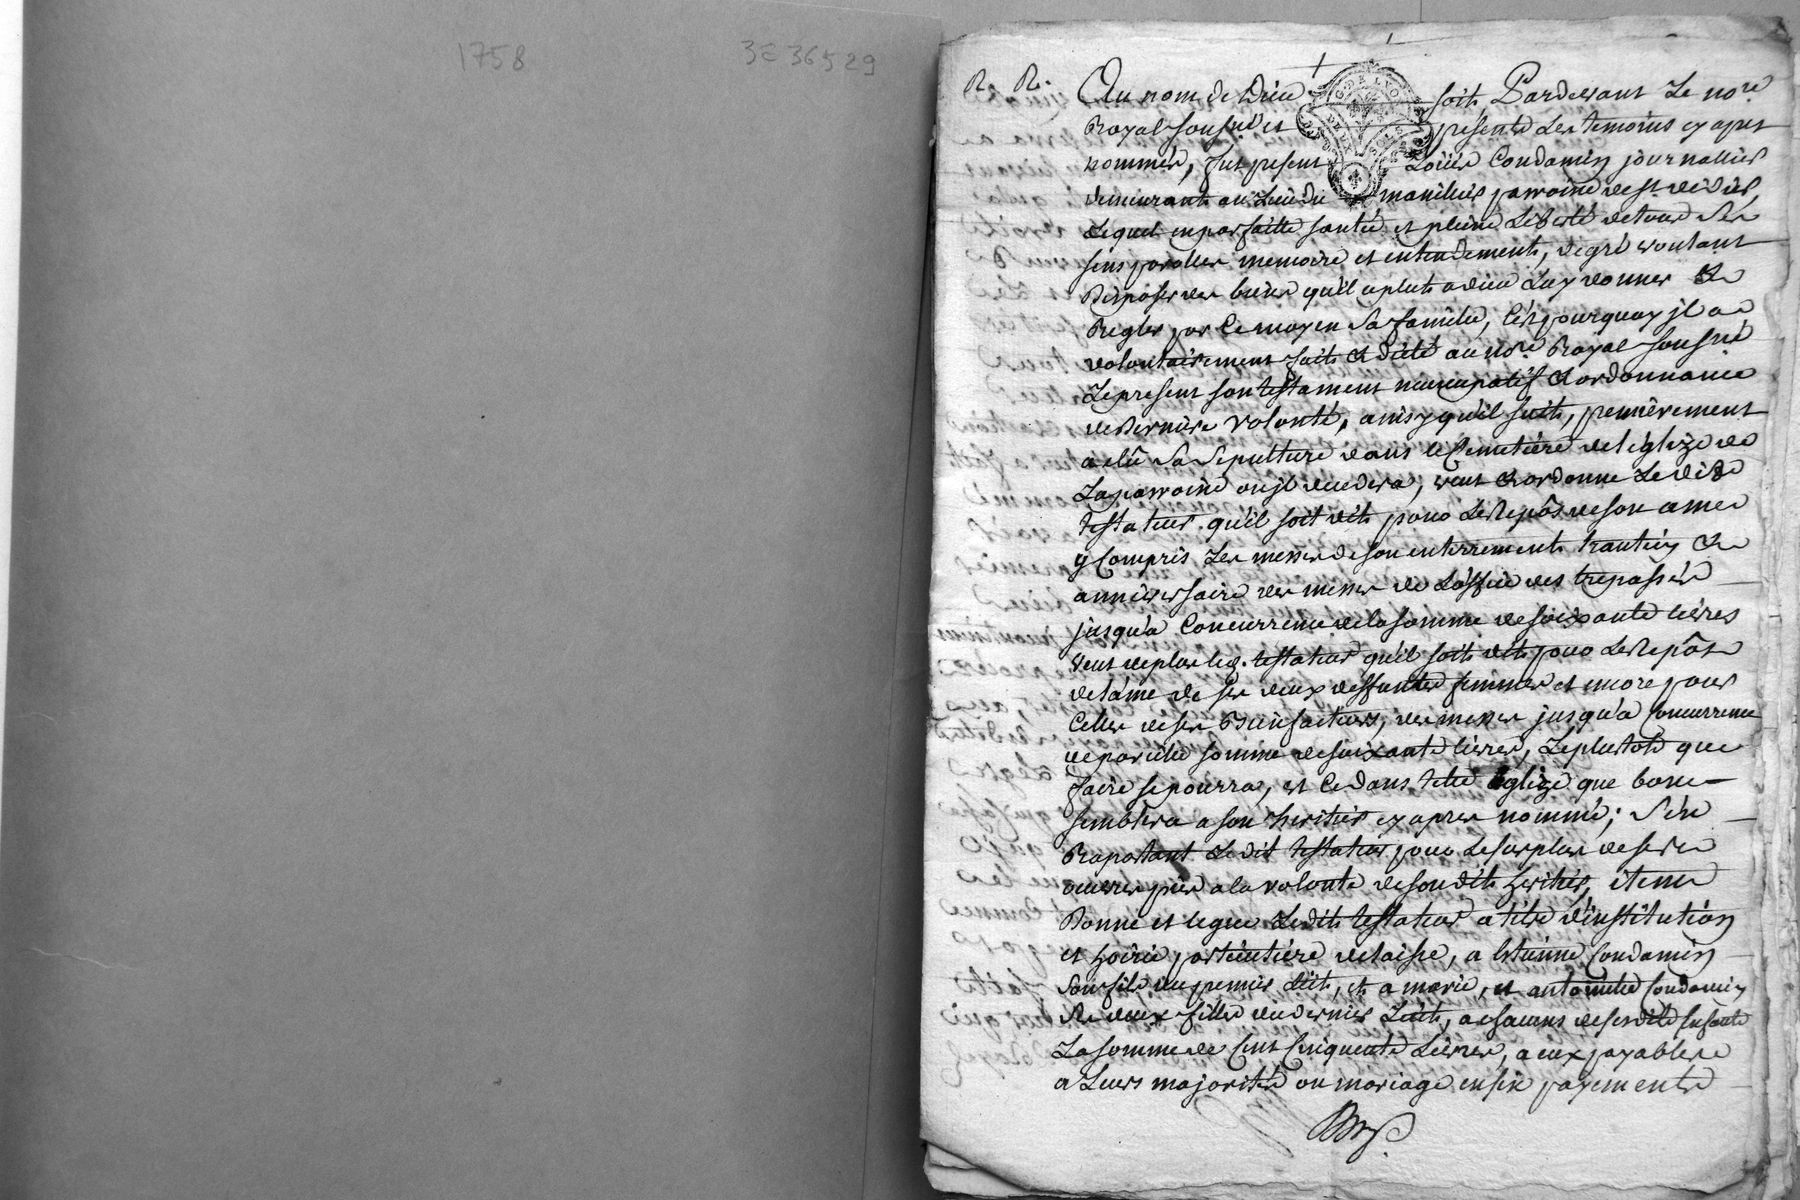 1758
3E 36529
R. R.
Au nom de Dieu soit, Pardevant Le nore.
Royal soussné et présents Les temoins cy apres
nommés, fut present Loüis Condamin journallier
demeurant au Lieu du manillier parroisse de st. didier
Lequel en parfaitte santée et pleine Liberté de tous Ses
sens parolles memoire et entendement, de gré voulant
Disposer des biens qu'il a plut a dieu Luy donner &
Regler par Ce moyen Sa famille, C'est pourquoy jl a
volontairement fait & dicté au nore. Royal soussné
Le present son testament nuncupatif & ordonnance
de Derniere volonté, ainsy qu'il suit, premièrement
a elû Sa Sepulture dans le Cemetière de l'églize de
La parroisse ou jl deceddera, veut & ordonne Le dit
testateur qu'il soit dit pour Le Repôs de son ame
y Compris Les messes de son enterrement trantin &
anniversaire des messes de L'office des trepassés
jusqu'a Concurrence de la somme de soixante livres
veut de plus led. testateur qu'il soit dit pour Le Repôs
de l'ame de ses deux deffuntes femmes et encore pour
Celles de ses Bienfacteurs, des messes jusqu'a Concurrence
de pareille somme de soixante livres, Le plustot que
faire se pourra, et Ce dans telle Eglize que bon
semblera a son heritier cy apres nommé; S'en
Raportant Le dit testateur pour Le surplus de ses
oeuvres pies a la volonté de son dit heritier, item
Donne et legue Le dit testateur a titre d'institution
et hoirie particulière delaisse, a Estienne Condamin
son fils du premier Lit, et a marie, et antoinette Condamin
Ses deux filles du dernier Lit, a chacuns de ses dits enfants
La somme de Cent Cinquente Livres, a eux payables
a Leurs majorités ou mariage en six payements